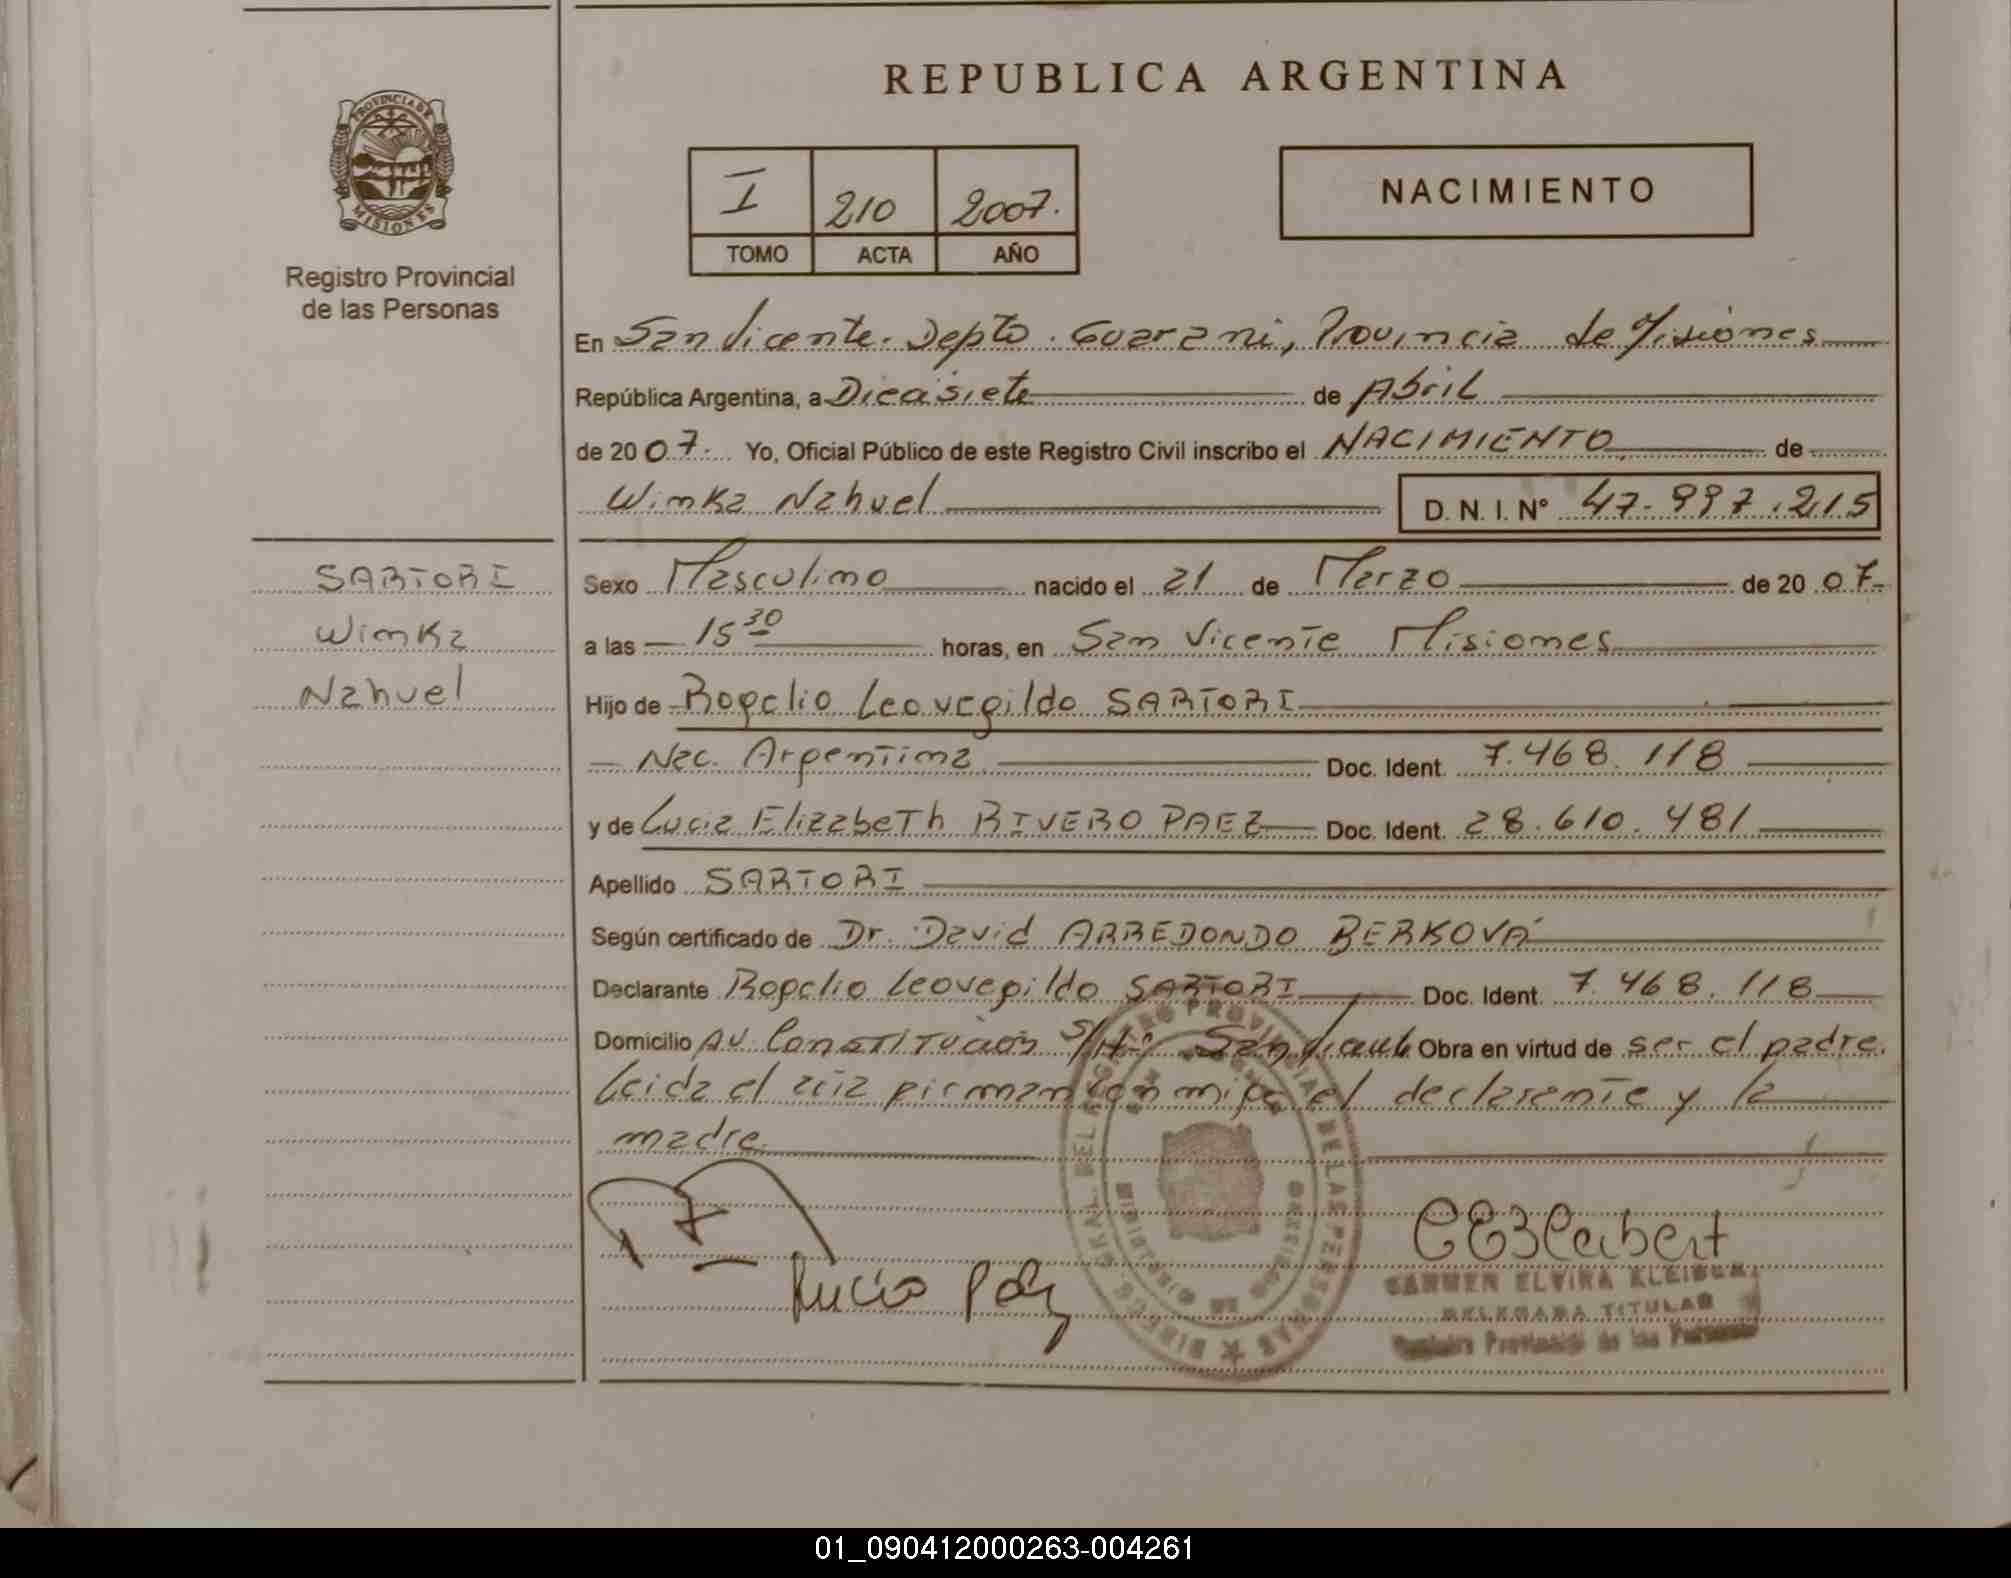 REPUBLICA ARGENTINA
PROVINCIA DE
MISIONES
Registro Provincial
de las Personas
I 210 2007.
TOMO ACTA AÑO
NACIMIENTO
En San Vicente. Depto. Guarani, Provincia de Misiones
República Argentina, a Diecisiete de Abril
de 2007. Yo, Oficial Público de este Registro Civil inscribo el NACIMIENTO de
Wimka Nahuel D. N. I. Nº 47.997.215
SARTORI
Wimka
Nahuel
Sexo Masculino nacido el 21 de Marzo de 2007-
a las 15 30 horas, en San Vicente Misiones
Hijo de Rogelio Leovegildo SARTORI
Nac. Argentina Doc. Ident. 7.468.118
y de Lucia Elizabeth RIVERO PAEZ Doc. Ident. 28.610.481
Apellido SARTORI
Según certificado de Dr. David ARREDONDO BERKOVA
Declarante Rogelio Leovegildo SARTORI Doc. Ident. 7.468.118
Domicilio AV. Constitución S/Nº San Vicente Obra en virtud de ser el padre.
Leida el acta firman conmigo el declarante y la
madre
Lucia Paez
CEKleibert
CARMEN ELVIRA KLEIBER
DELEGADA TITULAR
Registro Provincial de las Personas
DIREC. GRAL. DEL REGISTRO PROVINCIAL DE LAS PERSONAS
01_090412000263-004261